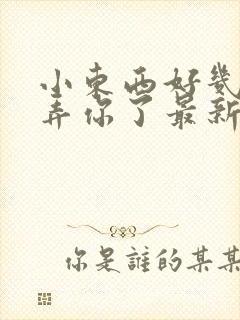 小东西好幾
弄你了最新
你是誰的某某